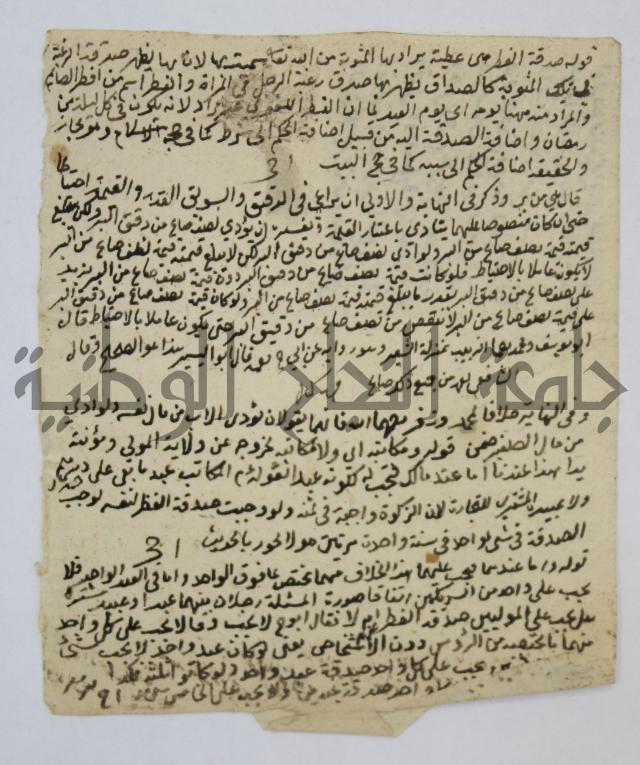 قوله صدقة الفطر هي عطية يراد بها المثوبة من الله تعالى سميت بها لان بها يظهر صدق الرغبة
في تلك المثوبة كالصداق يظهر بها صدق رغبة الرجل في المراة والفطر اسم من افطر الصائم
والمراد منه يومه اى يوم العيد لان الفطر اللغوى غير مراد لانه يكون في كل ليلة من
رمضان واضافة الصدقة اليه من قبيل اضافة الحكم الى شرط كما في حجة الاسلام وهو مجاز
والحقيقة اضافة الحكم الى سببه كما في حج البيت
وذكر في النهاية والاولى ان يراعى في الدقيق والسويق القدر والقيمة احتياطا
حتى اذا كان منصوصا عليهما يتادى باعتبار القيمة وتفسيره ان يؤدي نصف صاع من دقيق البر ولكن يبلغ
قيمته قيمة نصف صاع من البر ولو ادى نصف صاع من دقيق البر ولكن لا يبلغ قيمته قيمة نصف صاع من البر
لا يكون عاملا بالاحتياط فلو كانت قيمة نصف صاع من دقيق البر دون قيمة نصف صاع من البر يزيد
على نصف صاع من دقيق البر بقدر ما يبلغ قيمته قيمة نصف صاع من البر ولو كان قيمة نصف صاع من دقيق البر
على قيمة نصف صاع من البر لا ينقص من نصف صاع من دقيق البر حتى يكون عاملا بالاحتياط قال
ابو يوسف ومحمد الزبيب بمنزلة الشعير وهو رواية عن ابي ح رحمه قال ابو اليسر هذا هو الصحيح وقال
جامعة النجاح الوطنية
وفي النهاية خلافا لمحمد وزفر رحمهما الله فانهما يقولان يؤدى الاب من مال نفسه ولو ادى
من مال الصغير ضمن قوله ومكاتبه اى ولا مكاتبه لخروجه عن ولاية المولى ومؤنته
يدا هذا عندنا اما عند مالك فتجب له لكونه عبدا لقوله م المكاتب عبد ما بقى على درهم
ولا عبيد المشترى للتجارة لان الزكوة واجبة في ثمنه ولو وجبت صدقة الفطر لنفسه لوجب
الصدقة في شئ واحد في سنة واحدة مرتين
قوله واما عندهما فيجب عليهما هذا الخلاف بينهما مختص بما فوق الواحد واما في العبد الواحد فلا
يجب على واحد من الشريكين اتفاقا صورة المسئلة رجلان بينهما عبد او عبيد مشتركة
هل يجب على الموليين صدقة الفطر ام لا فقال ابو ح لا يجب وقالا يجب على كل واحد
منهما ما يخصه من الرؤس دون الاشقاص يعنى لو كان عبد واحد لا يجب
يجب على كل واحد صدقة عبد واحد ولو كانوا ثلثة